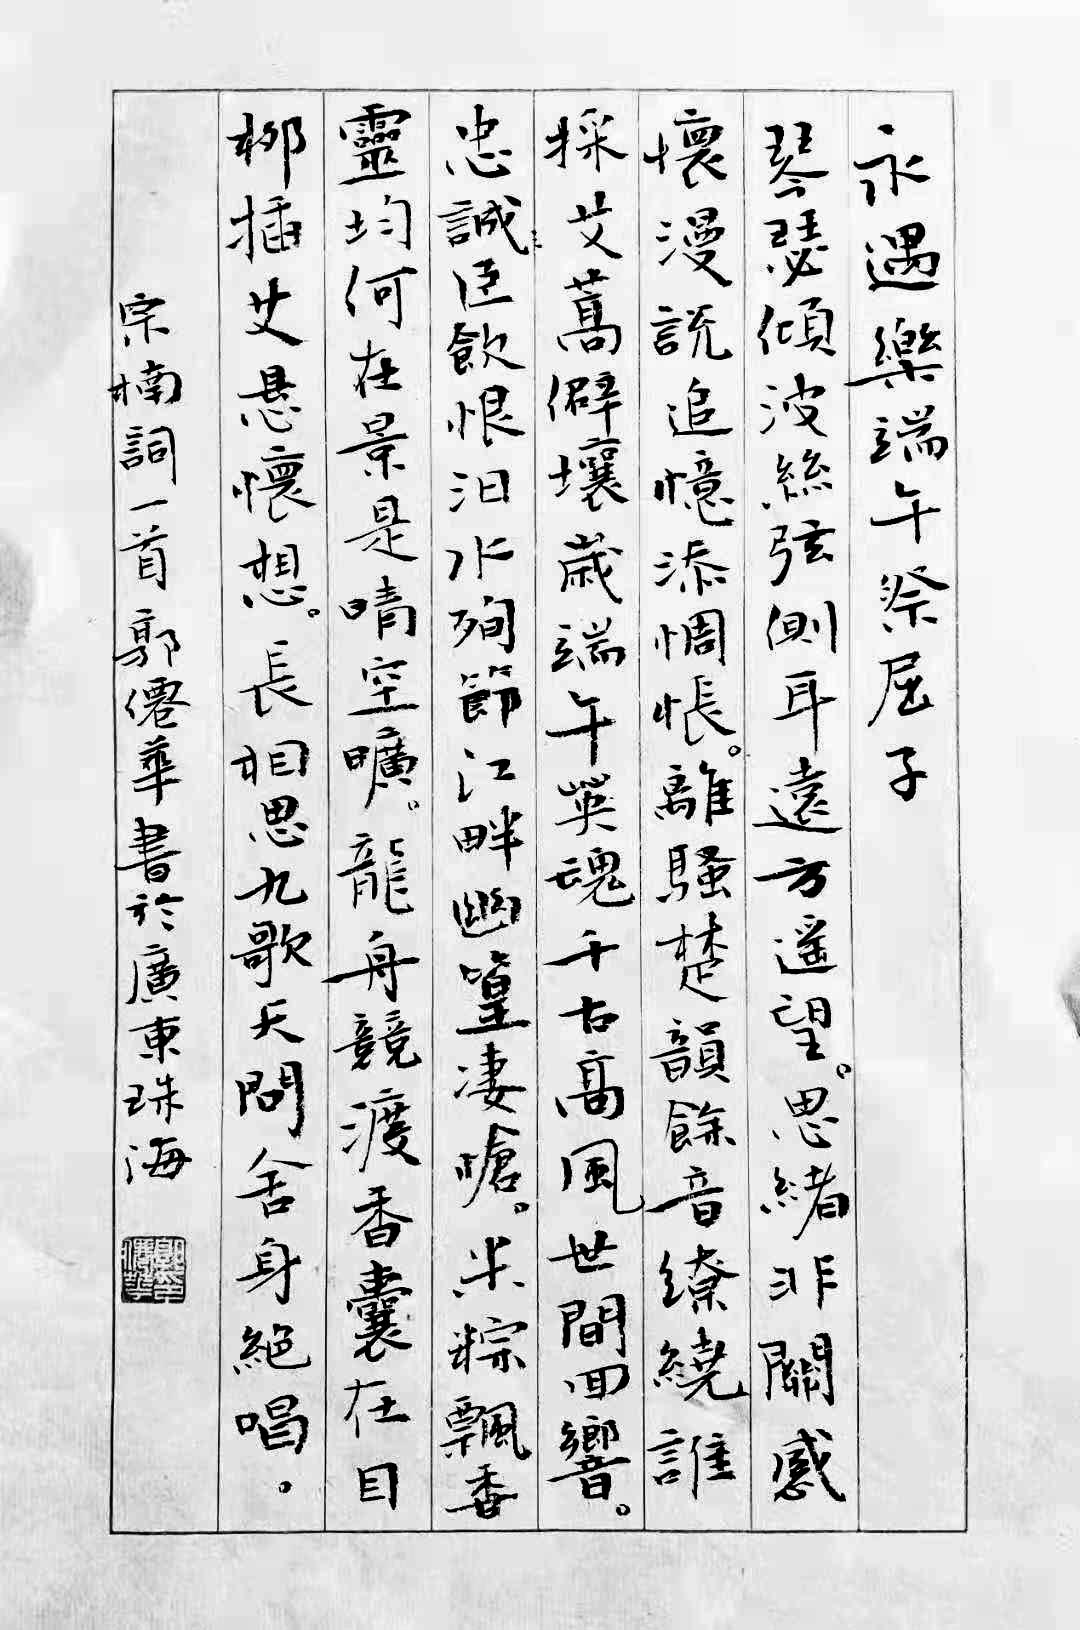 永遇樂端午祭屈子
琴瑟傾波絲弦側耳遠方遥望。思緒非關感
懷漫説追憶添惆悵。離騷楚韻餘音繚繞誰
採艾蒿僻壤歲端午英魂千古高風世間回響。
忠誠臣飲恨汨水殉節江畔幽篁凄愴。米粽飄香
靈均何在景是晴空曠。龍舟競渡香囊在目
柳插艾懸懷想。長相思九歌天問舍身絕唱。
宗楠詞一首郭僊華書於廣東珠海